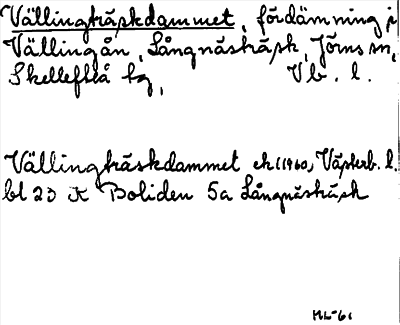 Vällingträskdammet, fördämning i
Vällingån, Långnästräsk, Jörns sn,
Skellefteå kg, Vb. l.
Vällingträskdammet ek (1960, Västerb. l.
bl 23 K Boliden 5a Långnästräsk
ML-61